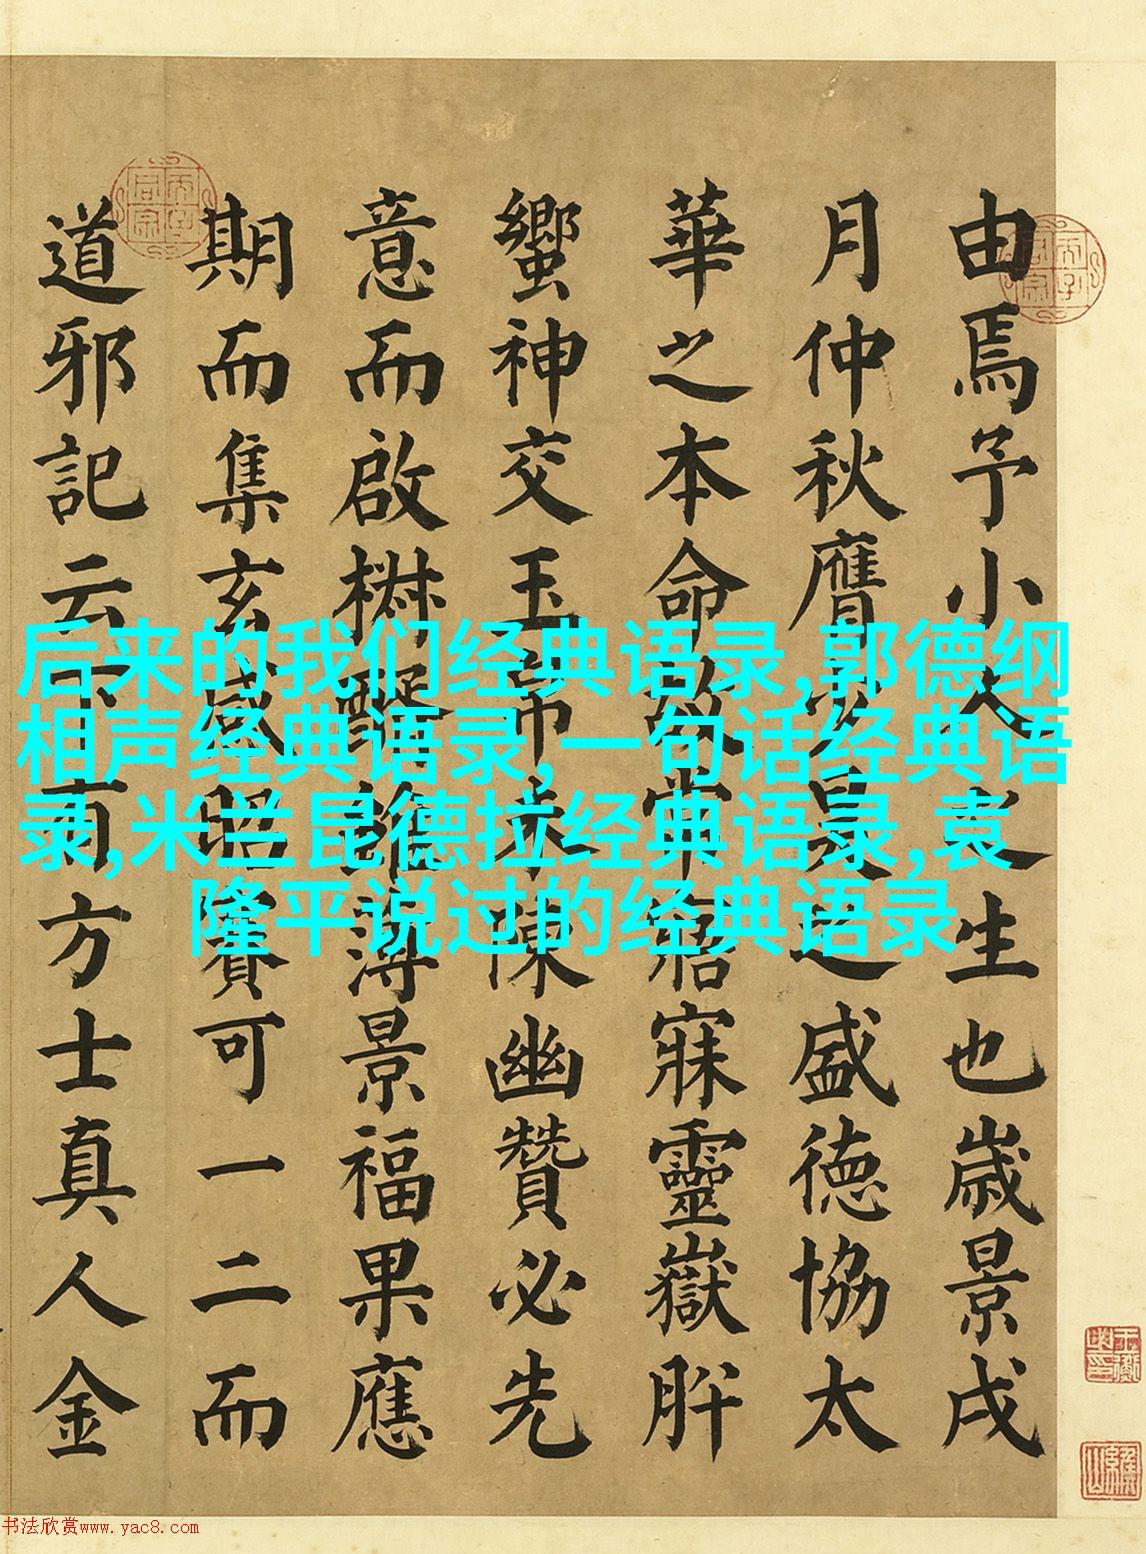 由焉予小人之生也歲景戌
月仲秋膺少昊之盛德協太
華之本命故常寤寐靈嶽肸
蠁神交玉帛未陳幽贊必先
意而啟椒醑雖薄景福果應
期而集玄感昭賚可一二而
道邪記云有方士真人金
后来的我们经典语录,郭德纲
相声经典语录,一句话经典语
录,米兰昆德拉经典语录,袁
隆平说过的经典语录
书法欣赏www.yac8.com